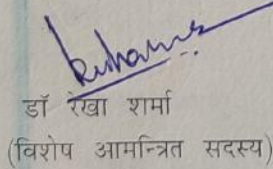 डॉ रेखा शर्मा
(विशेष आमन्त्रित सदस्य)